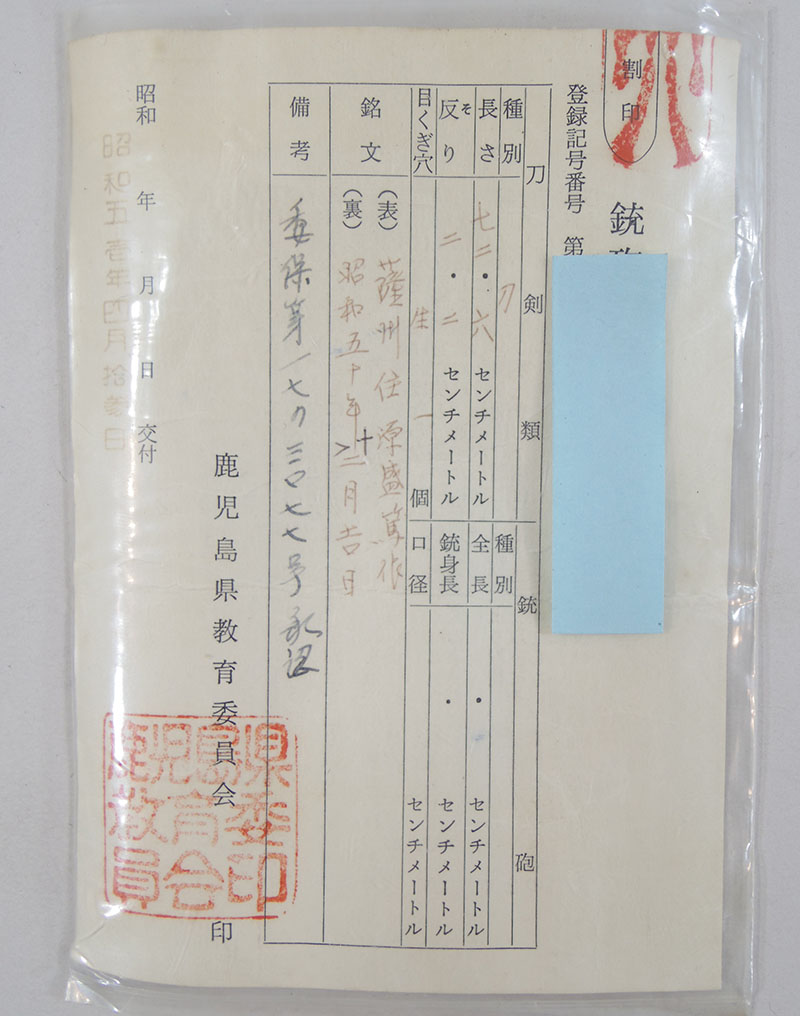 割印
銃
登録記号番号 第
刀剣類
種別 刀
長さ 七二・六 センチメートル
反り 二・二 センチメートル
そ
目くぎ穴 生 一 個
銃砲
種別
全長 ・ センチメートル
銃身長 ・ センチメートル
口径 センチメートル
銘文
(表) 薩州住源盛篤作
(裏) 昭和五十年十二月吉日
備考
委保第一七刀三〇七七号承認
昭和 年 月 日 交付
昭和五壱年四月拾
日
鹿児島県教育委員会 印
鹿児島県
教育委
員会印